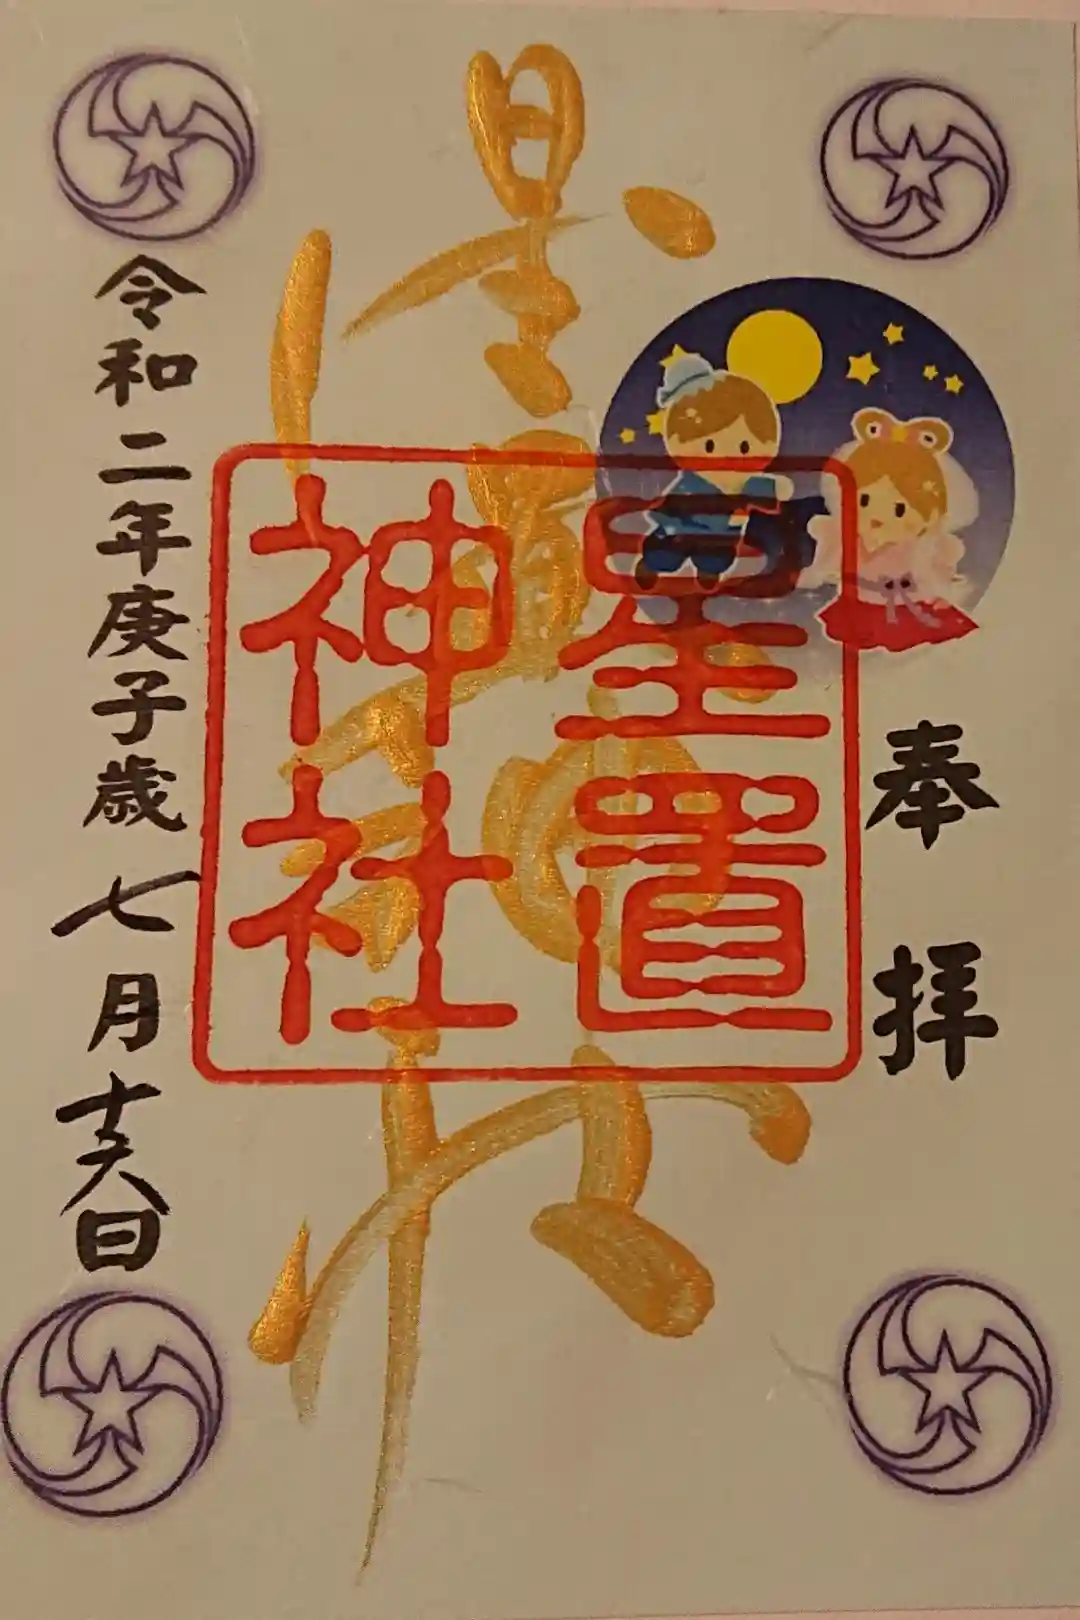 奉拝
星置
神社
星置神社
令和二年庚子歳七月十六日